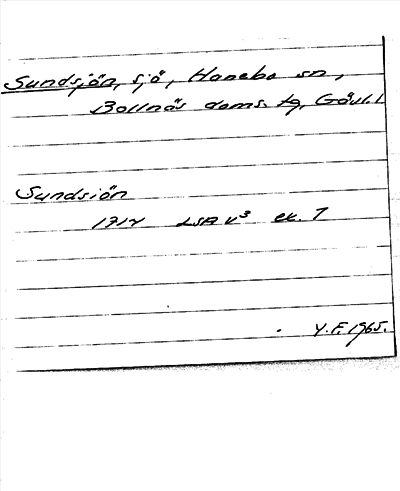 Sundsjön, sjö, Hanebo sn,
Bollnäs doms. tg, Gävl. l
Sundsiön
1712 LSA V³ ex. 7
Y.F. 1965.